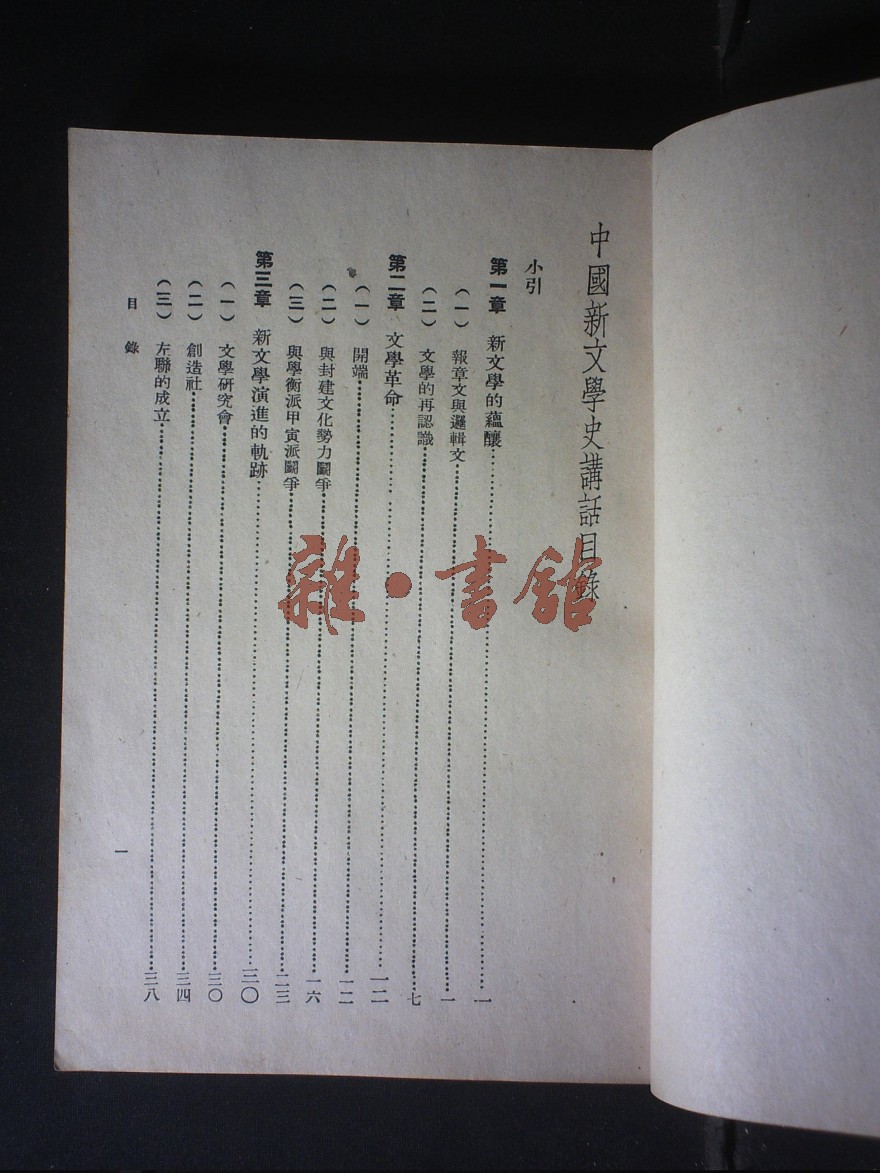 中國新文學史講話目錄
小引
第一章 新文學的蘊釀………一
（一）報章文與邏輯文………一
（二）文學的再認識………七
第二章 文學革命………一二
（一）開端………一二
（二）與封建文化勢力鬭爭………一六
（三）與學衡派甲寅派鬭爭………二三
第三章 新文學演進的軌跡………三〇
（一）文學研究會………三〇
（二）創造社………三四
（三）左聯的成立………三八
目錄
一
雜·書館